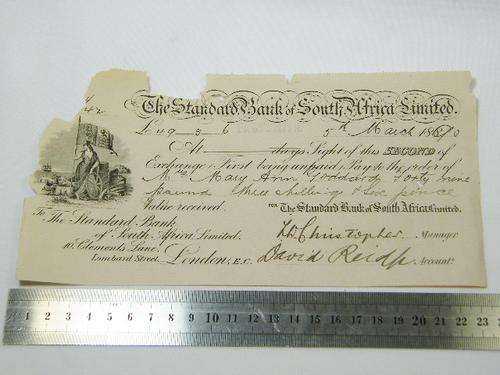 The Standard Bank of South Africa Limited.
£49 3 6 5th March 1870
At days Sight of this SECOND of
Exchange (First being unpaid) Pay to the order of
Mrs Mary Ann Goddard Forty nine
pound three shillings & six pence
Value received.
FOR The Standard Bank of South Africa Limited.
To The Standard Bank
of South Africa Limited.
10, Clements Lane,
Lombard Street, London, E.C.
Christopher Manager
David Reid Account!
1 2 3 4 5 6 7 8 9 10 11 12 13 14 15 16 17 18 19 20 21 22 23